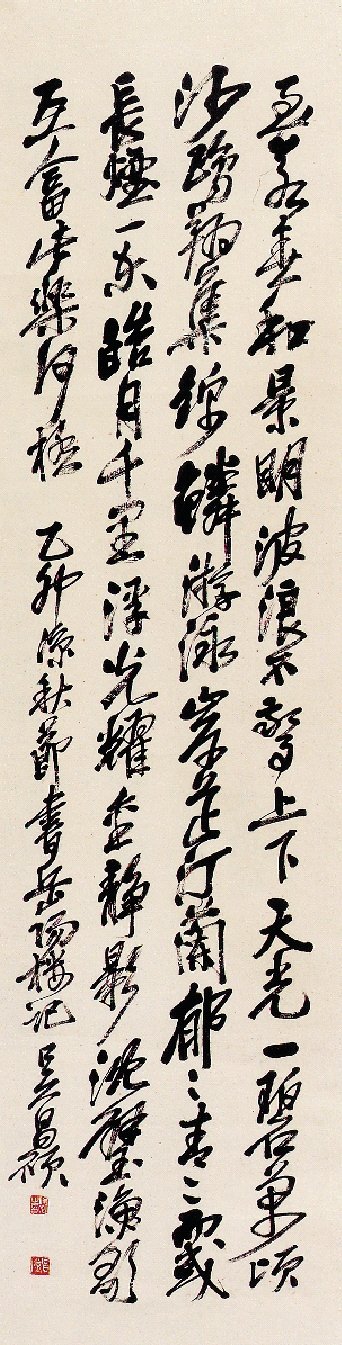 至若春和景明波浪不驚上下天光一碧萬頃
沙鷗翔集錦鱗游泳岸芷汀蘭郁〻青〻或
長煙一空皓月千里浮光耀金靜影沈璧漁歌
互畣此樂何極 乙卯涼秋節書岳陽樓記 吳昌碩